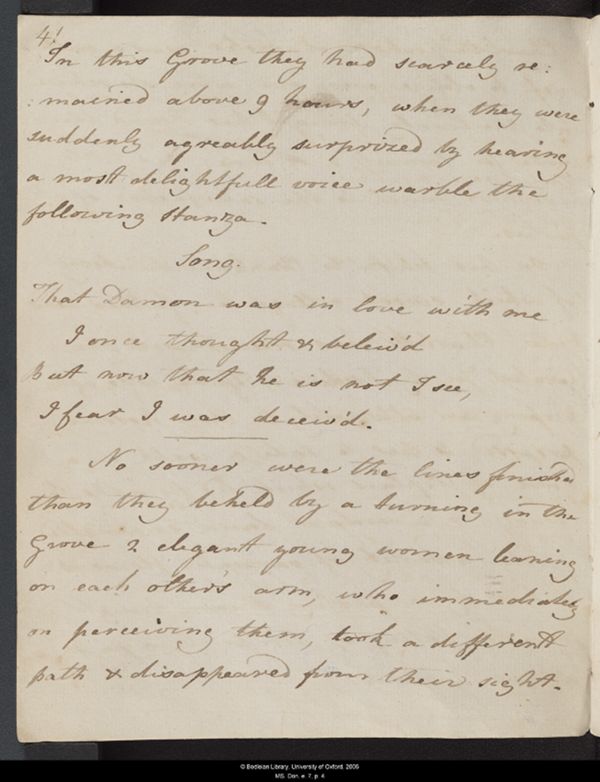 4!
In this Grove they had scarcely re:
:mained above 9 hours, when they were
suddenly agreably surprized by hearing
a most delightfull voice warble the
following stanza.
Song.
That Damon was in love with me
I once thought & beleiv'd
But now that he is not I see,
I fear I was deceiv'd.
No sooner were the lines finished
than they beheld by a turning in the
Grove 2 elegant young women leaning
on each other's arm, who immediately
on perceiving them, took a different
path & disappeared from their sight.
© Bodleian Library, University of Oxford, 2006
MS. Don. e. 7, p. 4